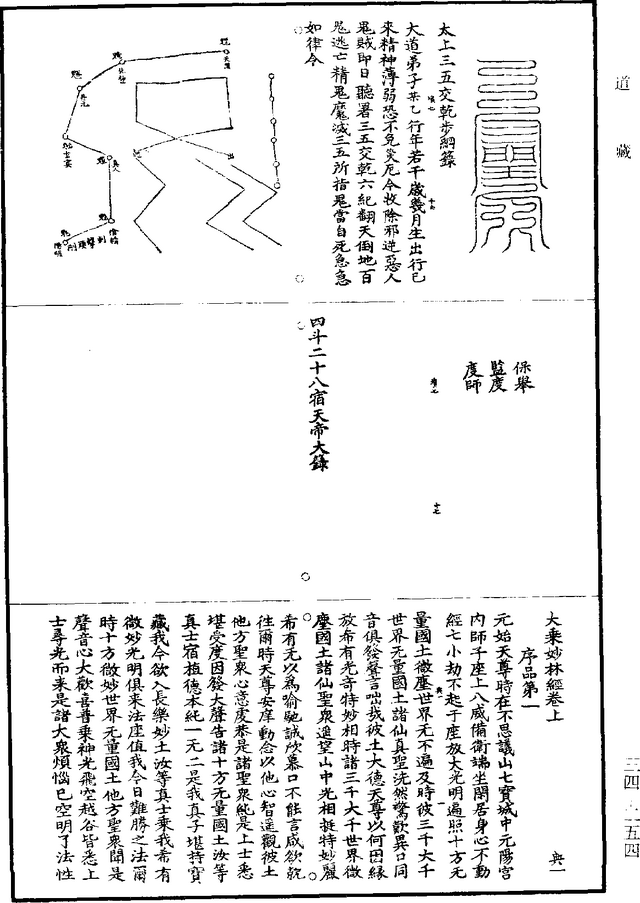 道藏
太上三五交乾步綱籙
大道弟子某乙行年若干歲幾月生出行已
來精神薄弱恐不免災厄今收除邪逆惡人
鬼賊即日聽署三五交乾六紀翻天倒地百
鬼逃亡精鬼魔滅三五所指鬼當自死急急
如律令
保舉
監度
度師
四斗二十八宿天帝大籙
大乘妙林經卷上
序品第一
元始天尊時在不思議山七寶城中元陽宮
內師子座上八威備衛端坐閑居身心不動
經七小劫不起于座放大光明遍照十方无
量國土微塵世界无不遍及時彼三千大千
世界无量國土諸仙真聖洗然驚歎異口同
音俱發聲言咄哉彼土大德天尊以何因緣
放希有光奇特妙相時諸三千大千世界微
塵國土諸仙聖眾遥望山中光相挺特妙麗
希有无以為喻馳誠欣慕口不能言咸欲就
往爾時天尊安庠動念以他心智遥觀彼土
他方聖眾心意虔恭是諸聖眾純是上士悉
堪受度因發大聲告諸十方无量國土汝等
真士宿植德本純一无二是我真子堪持寶
藏我今欲入長樂妙土汝等真士乘我希有
微妙光明俱來法座值我今日難勝之法爾
時十方微妙世界无量國土他方聖眾聞是
聲音心大歡喜普乘神光飛空越谷皆悉上
士尋光而来是諸大眾煩惱已空明了法性
典一